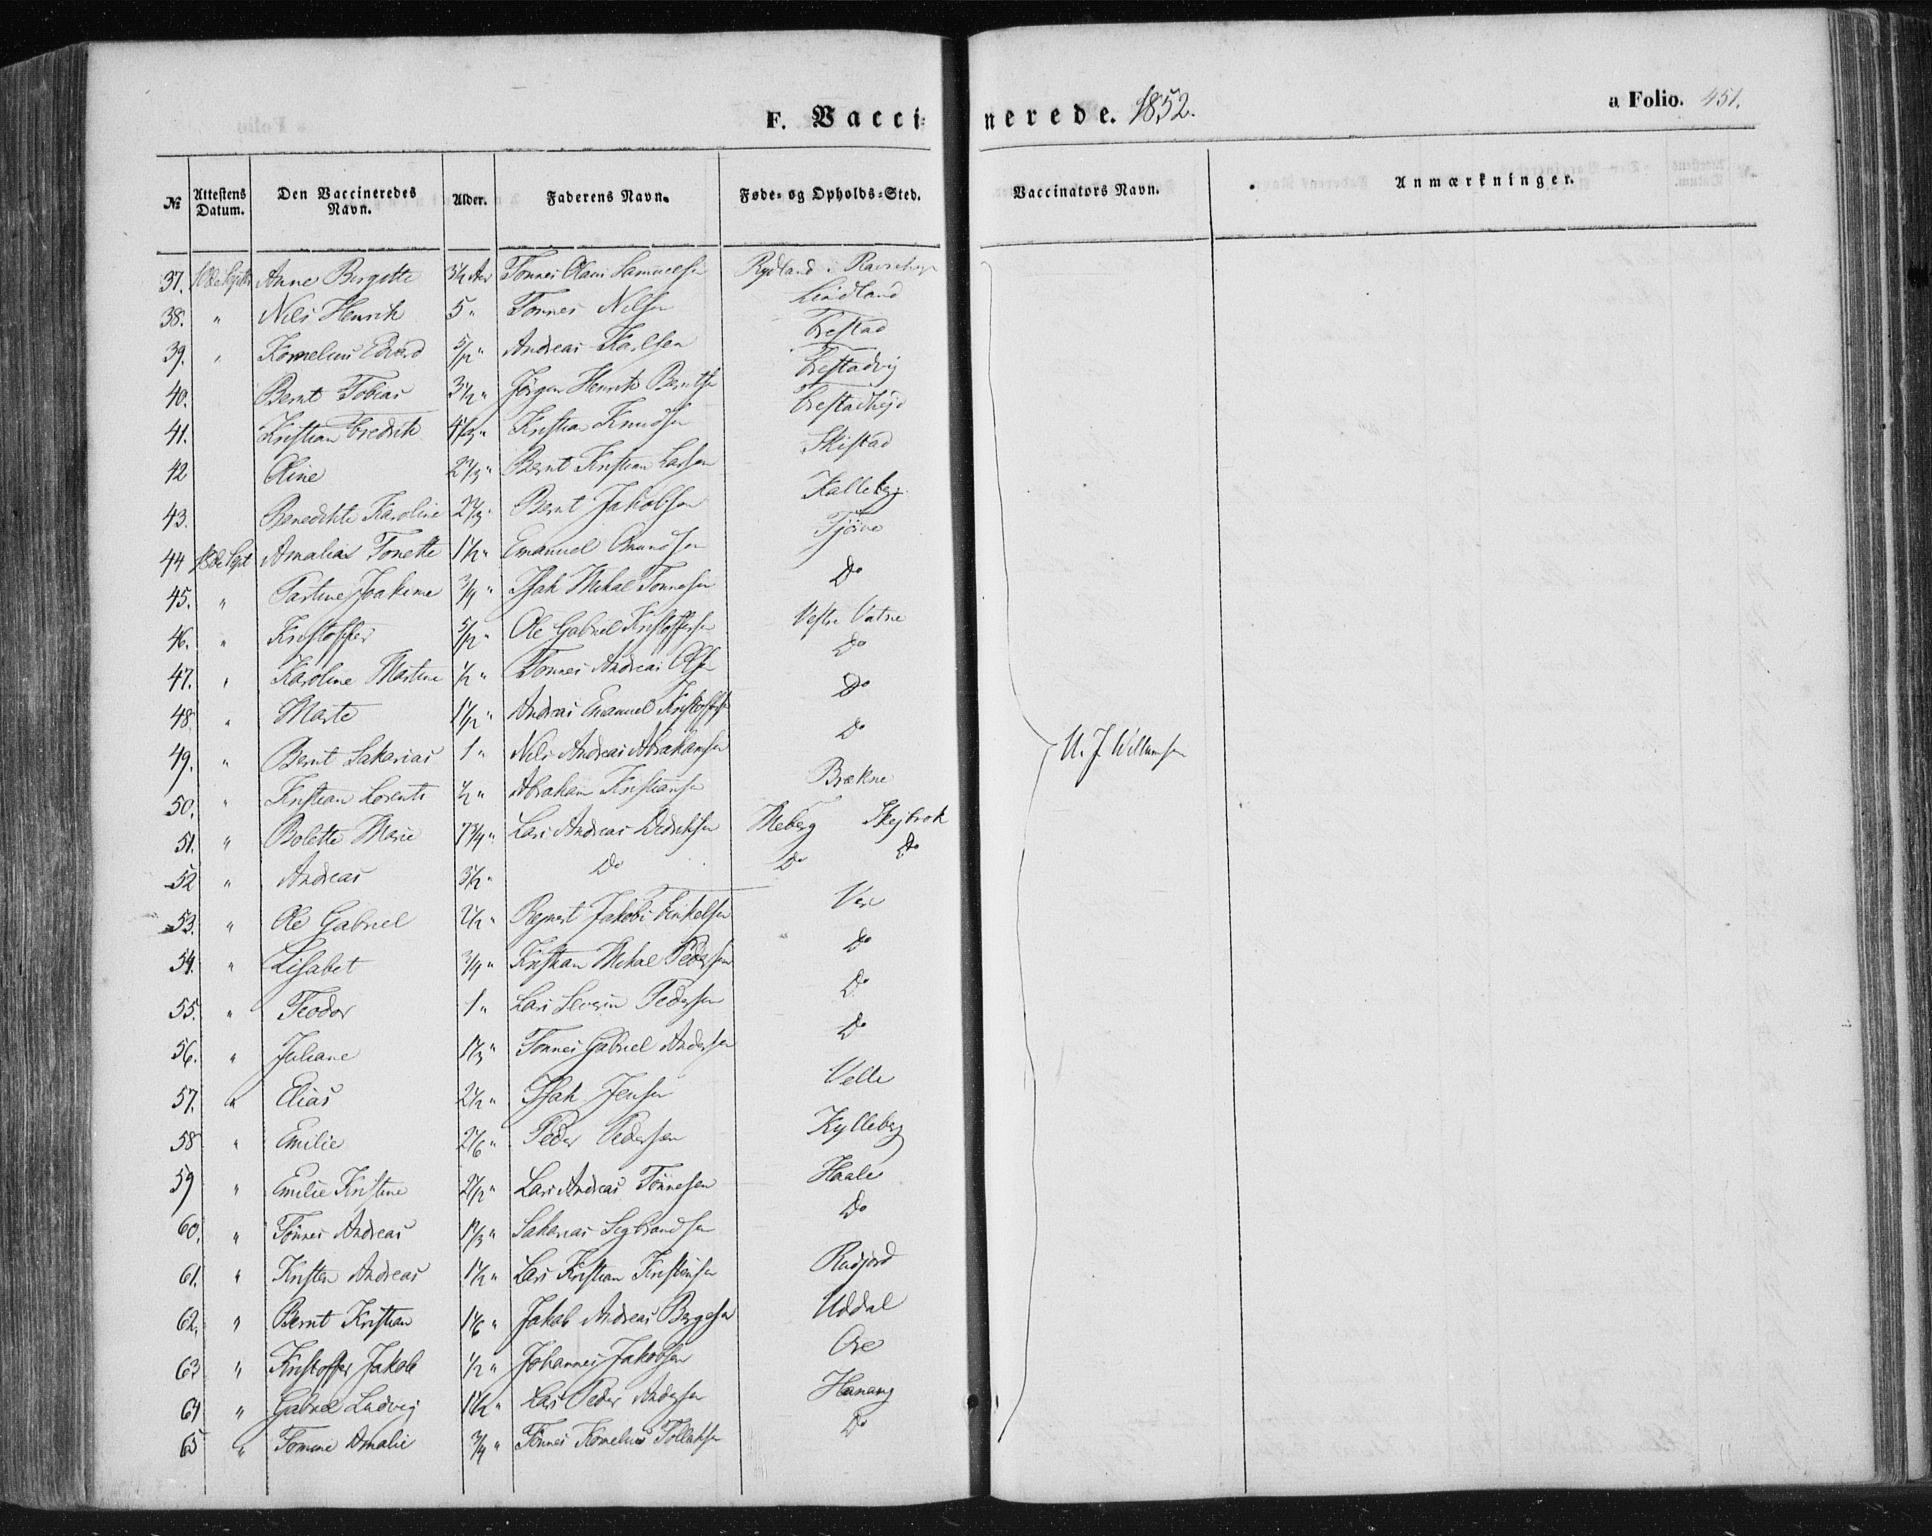 F. Vaccinerede. 1852.
a Folio. 451.
№ Attestens Datum. Den Vaccineredes Navn. Alder. Faderens Navn. Føde- og Opholds-Sted. Vaccinators Navn. Anmærkninger.
37. Anne Birgitte Tønnes Olaus Samuelsen Rydland
38. " Nils Henrik 5 " Tønnes Nilsen Lindland
39. " Kornelius Edvard 5/12 " Andreas Karlsen
40. Bernt Tobias 3½ " Jørgen Henrik Berntsen
41. Kristian Fredrik Kristian Knudsen
42 Oline 2⅔ " Bernt Kristian Larsen Skistad
43. Benedikte Karoline 2⅔ " Bernt Jakobsen Kalleberg
44 Amalia Tonette 1½ " Emanuel Omundsen Tjørve
45. " Joakime ¾ " Isak Mikal Tønnesen Do
46. " Kristoffer 5/12 " Ole Gabriel Kristoffersen Vestre Vatne
47. " Karoline Martine ½ " Tønnes Andreas Olsen Do
48. " Marte Andreas Emanuel Do
49. " Bernt Sakarias 1 " Nils Andreas Abrahamsen Do
50. " Kristian Lorents ½ " Abraham Kristiansen Brekne
51. " Bolette Marie 7¾ " Lars Andreas Didriksen Meberg Skejbrok
52 " Andreas 3½ " Do Do Do
53. " Ole Gabriel 2½ " Rejnert Jakob Vere
54. " Lisabet ¾ " Kristian Mikal Pedersen Do
55. " Teodor 1 " Lars Severin Pedersen Do
56. " Juliane 1⅓ " Tønnes Gabriel Andersen Do
57. " Elias 2½ " Isak Jensen Velle
58 " Emilie 2⅙ " Peder Pedersen Kylleberg
59 " Emilie Kristine Lars Andreas Tønnesen Haale
60. " Tønnes Andreas 1⅓ " Sakarias Sigbrandsen Do
61. " Kristen Andreas 1½ " Lars Kristian Kristensen Rudjord
62. " Bernt Kristian 1⅙ " Jakob Andreas Bergesen Uddal
63 " Kristoffer Jakob ½ " Johannes Jakobsen Ore
64 " Gabriel Ludvig 1½ " Lars Peder Andersen Hanang
65 " Tomine Amalie ¾ " Tønnes Kornelius Tollaksen Do
Willumsen